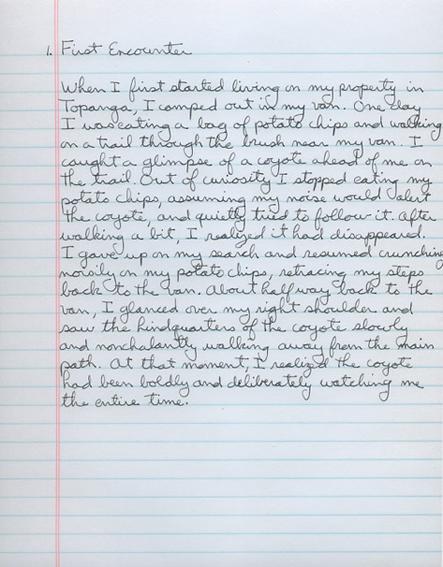 1. First Encounter
When I first started living on my property in
Topanga, I camped out in my van. One day
I was eating a bag of potato chips and walking
on a trail through the brush near my van. I
caught a glimpse of a coyote ahead of me on
the trail. Out of curiosity I stopped eating my
potato chips, assuming my noise would alert
the coyote, and quietly tried to follow it. After
walking a bit, I realized it had disappeared.
I gave up on my search and resumed crunching
noisily on my potato chips, retracing my steps
back to the van. About halfway back to the
van, I glanced over my right shoulder and
saw the hindquarters of the coyote slowly
and nonchalantly walking away from the main
path. At that moment, I realized the coyote
had been boldly and deliberately watching me
the entire time.